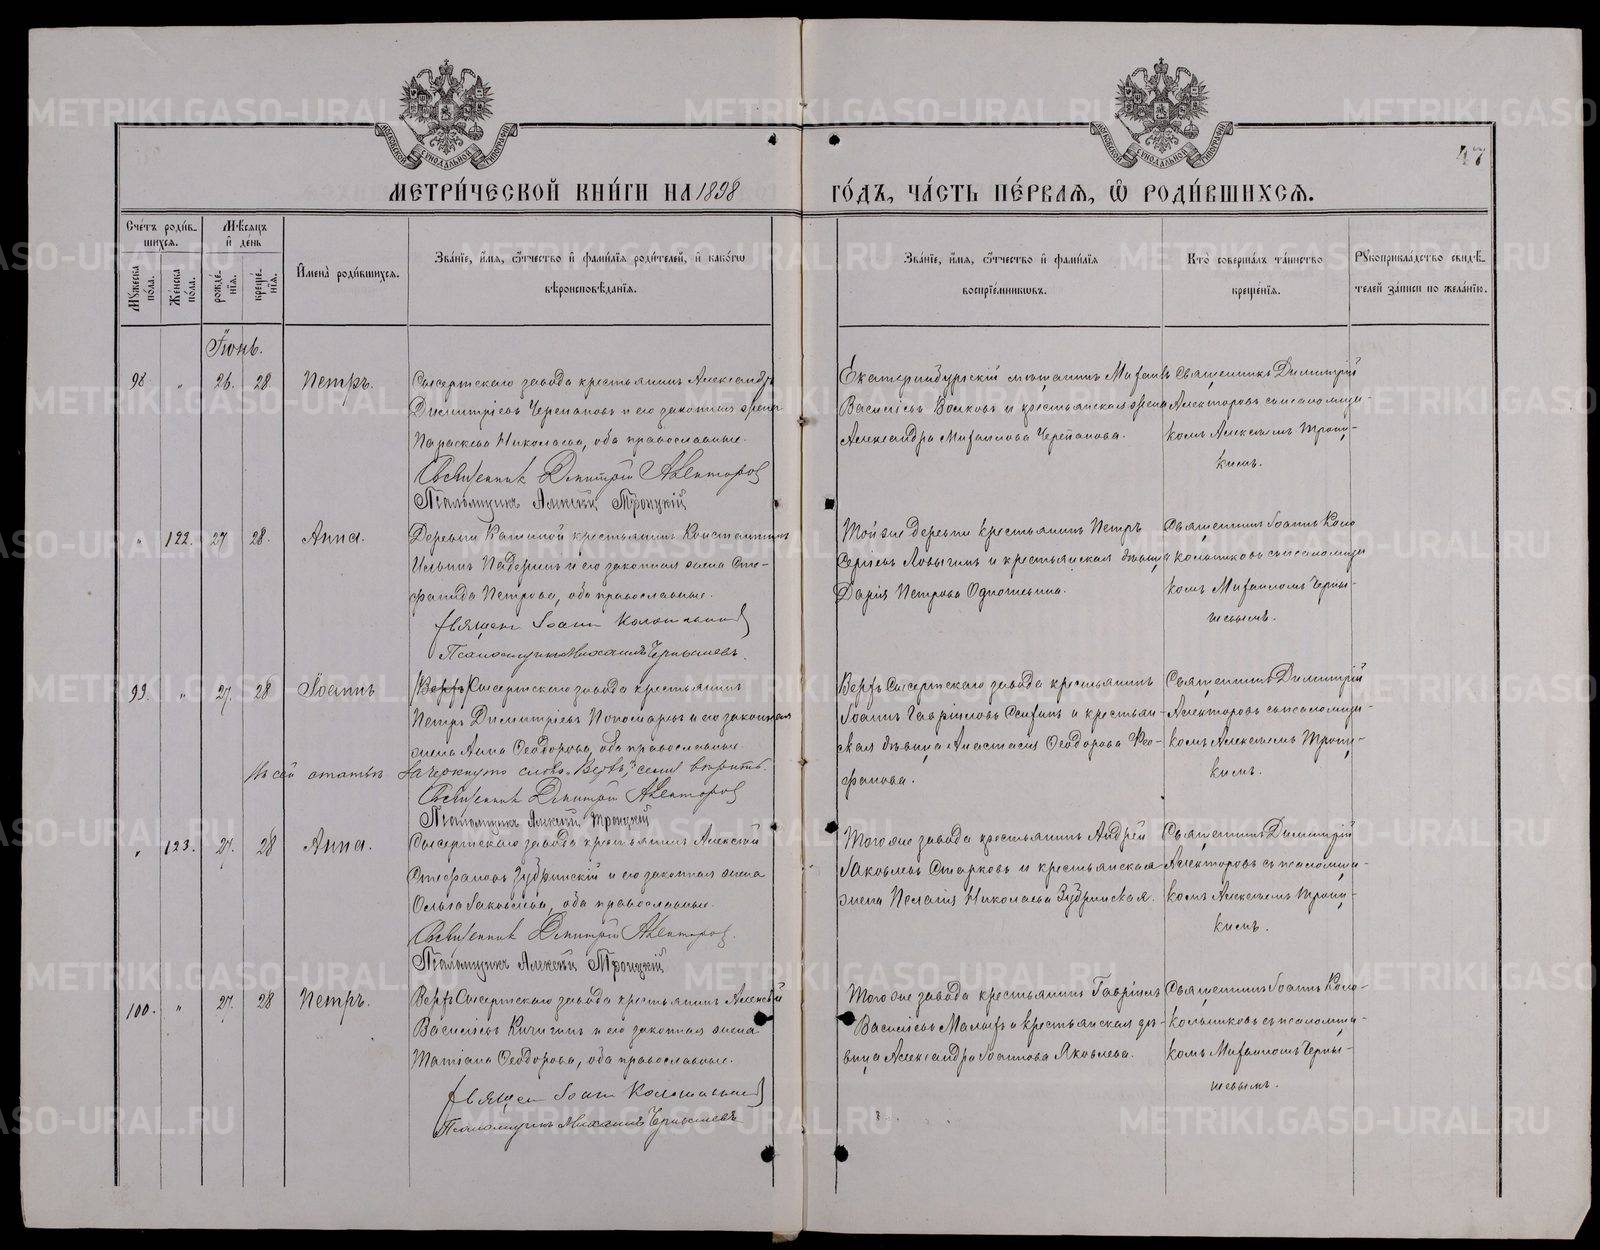 МЕТРИ́ЧЕСКОЙ КНИ́ГИ НА 1898
ГО́ДЪ, ЧА́СТЬ ПЕ́РВАЯ, Ѽ РОДИ́ВШИХСѦ.
47
МОСКОВСКОЙ СѴНОДАЛЬНОЙ ТИПОГРАФІИ
МОСКОВСКОЙ СѴНОДАЛЬНОЙ ТИПОГРАФІИ
Счетъ роди́в-
шихсѧ.
Мѣ́сѧцъ
и҆ де́нь
Мꙋ́жеска по́ла.
Же́нска по́ла.
рожде́-нїѧ.
креще́-нїѧ.
И҆мена̀ роди́вшихсѧ.
Зва́нїе, и҆́мѧ, ѻ҆́тчество и҆ фами́лїѧ роди́телей, и҆ како́гѡ
вѣроисповѣ́данїѧ.
Зва́нїе, и҆́мѧ, ѻ҆́тчество и҆ фами́лїѧ
воспрїе́мникѡвъ.
Кто̀ соверша́лъ та́инство
креще́нїѧ.
Рꙋкоприкла́дство свидѣ́-
телей за́писи по жела́нїю.
Іюнь.
98 " 26. 28. Петръ.
Сысертскаго завода крестьянинъ Александръ
Димитріевъ Черепановъ и его законная жена
Параскева Николаева, оба православные.
Священник Дмитрій Алекторов
Псаломщикъ Алексѣй Троицкій
Екатеринбургскій мѣщанинъ Михаилъ
Васильевъ Волковъ и крестьянская жена
Александра Михаилова Черепанова.
Священникъ Димитрій
Алекторовъ съ псаломщи-
комъ Алексѣемъ Троиц-
кимъ.
" 122. 27 28. Анна.
Деревни Кашиной крестьянинъ Константинъ
Ильинъ Падеринъ и его законная жена Сте-
фанида Петрова, оба православные.
Священ Іоанн Колокольник
Псаломщикъ Михаилъ Чернышевъ.
Той же деревни крестьянинъ Петръ
Сергіевъ и крестьянская дѣвица
Дарія Петрова
Священникъ Іоаннъ Коло
кольниковъ съ псаломщи
комъ Михаиломъ Черны-
шевымъ.
99. " 27. 28 Іоаннъ
Верхъ Сысертскаго завода крестьянинъ
Петръ Димитріевъ Пономаревъ и его законная
жена Анна Ѳеодорова, оба православные.
Въ сей статьѣ зачеркнуто слово „Верхъ", семя вѣрить.
Священник Дмитрій Алекторов
Псаломщикъ Алексѣй Троицкій
Верхъ Сысертскаго завода крестьянинъ
Іоаннъ Гавріиловъ и крестьян-
ская дѣвица Анастасія Ѳеодорова Ѳео-
фанова.
Священникъ Димитрій
Алекторовъ съ псаломщи-
комъ Алексѣемъ Троиц-
кимъ.
" 123. 27. 28 Анна.
Сысертскаго завода крестьянинъ Алексѣй
Стефановъ Зубринскій и его законная жена
Ольга Яковлева, оба православные.
Священник Дмитрій Алекторов.
Псаломщикъ Алексѣй Троицкій
Того же завода крестьянинъ Андрей
Іаковлевъ Старковъ и крестьянская
жена Пелагія Николаева Зубринская.
Священникъ Димитрій
Алекторовъ съ псаломщи-
комъ Алексѣемъ Троиц-
кимъ.
100. " 27. 28 Петръ.
Верхъ Сысертскаго завода крестьянинъ Алексѣй
Васильевъ Кичигинъ и его законная жена
Татіана Ѳеодорова, оба православные.
Священ Іоанн Колокольник
Псаломщикъ Михаилъ Чернышевъ
Того же завода крестьянинъ Гавріилъ
Васильевъ Малыхъ и крестьянская дѣ-
вица Александра Іоаннова Яковлева.
Священникъ Іоаннъ Коло-
кольниковъ съ псаломщи-
комъ Михаиломъ Черны-
шевымъ.
METRIKI.GASO-URAL.RU